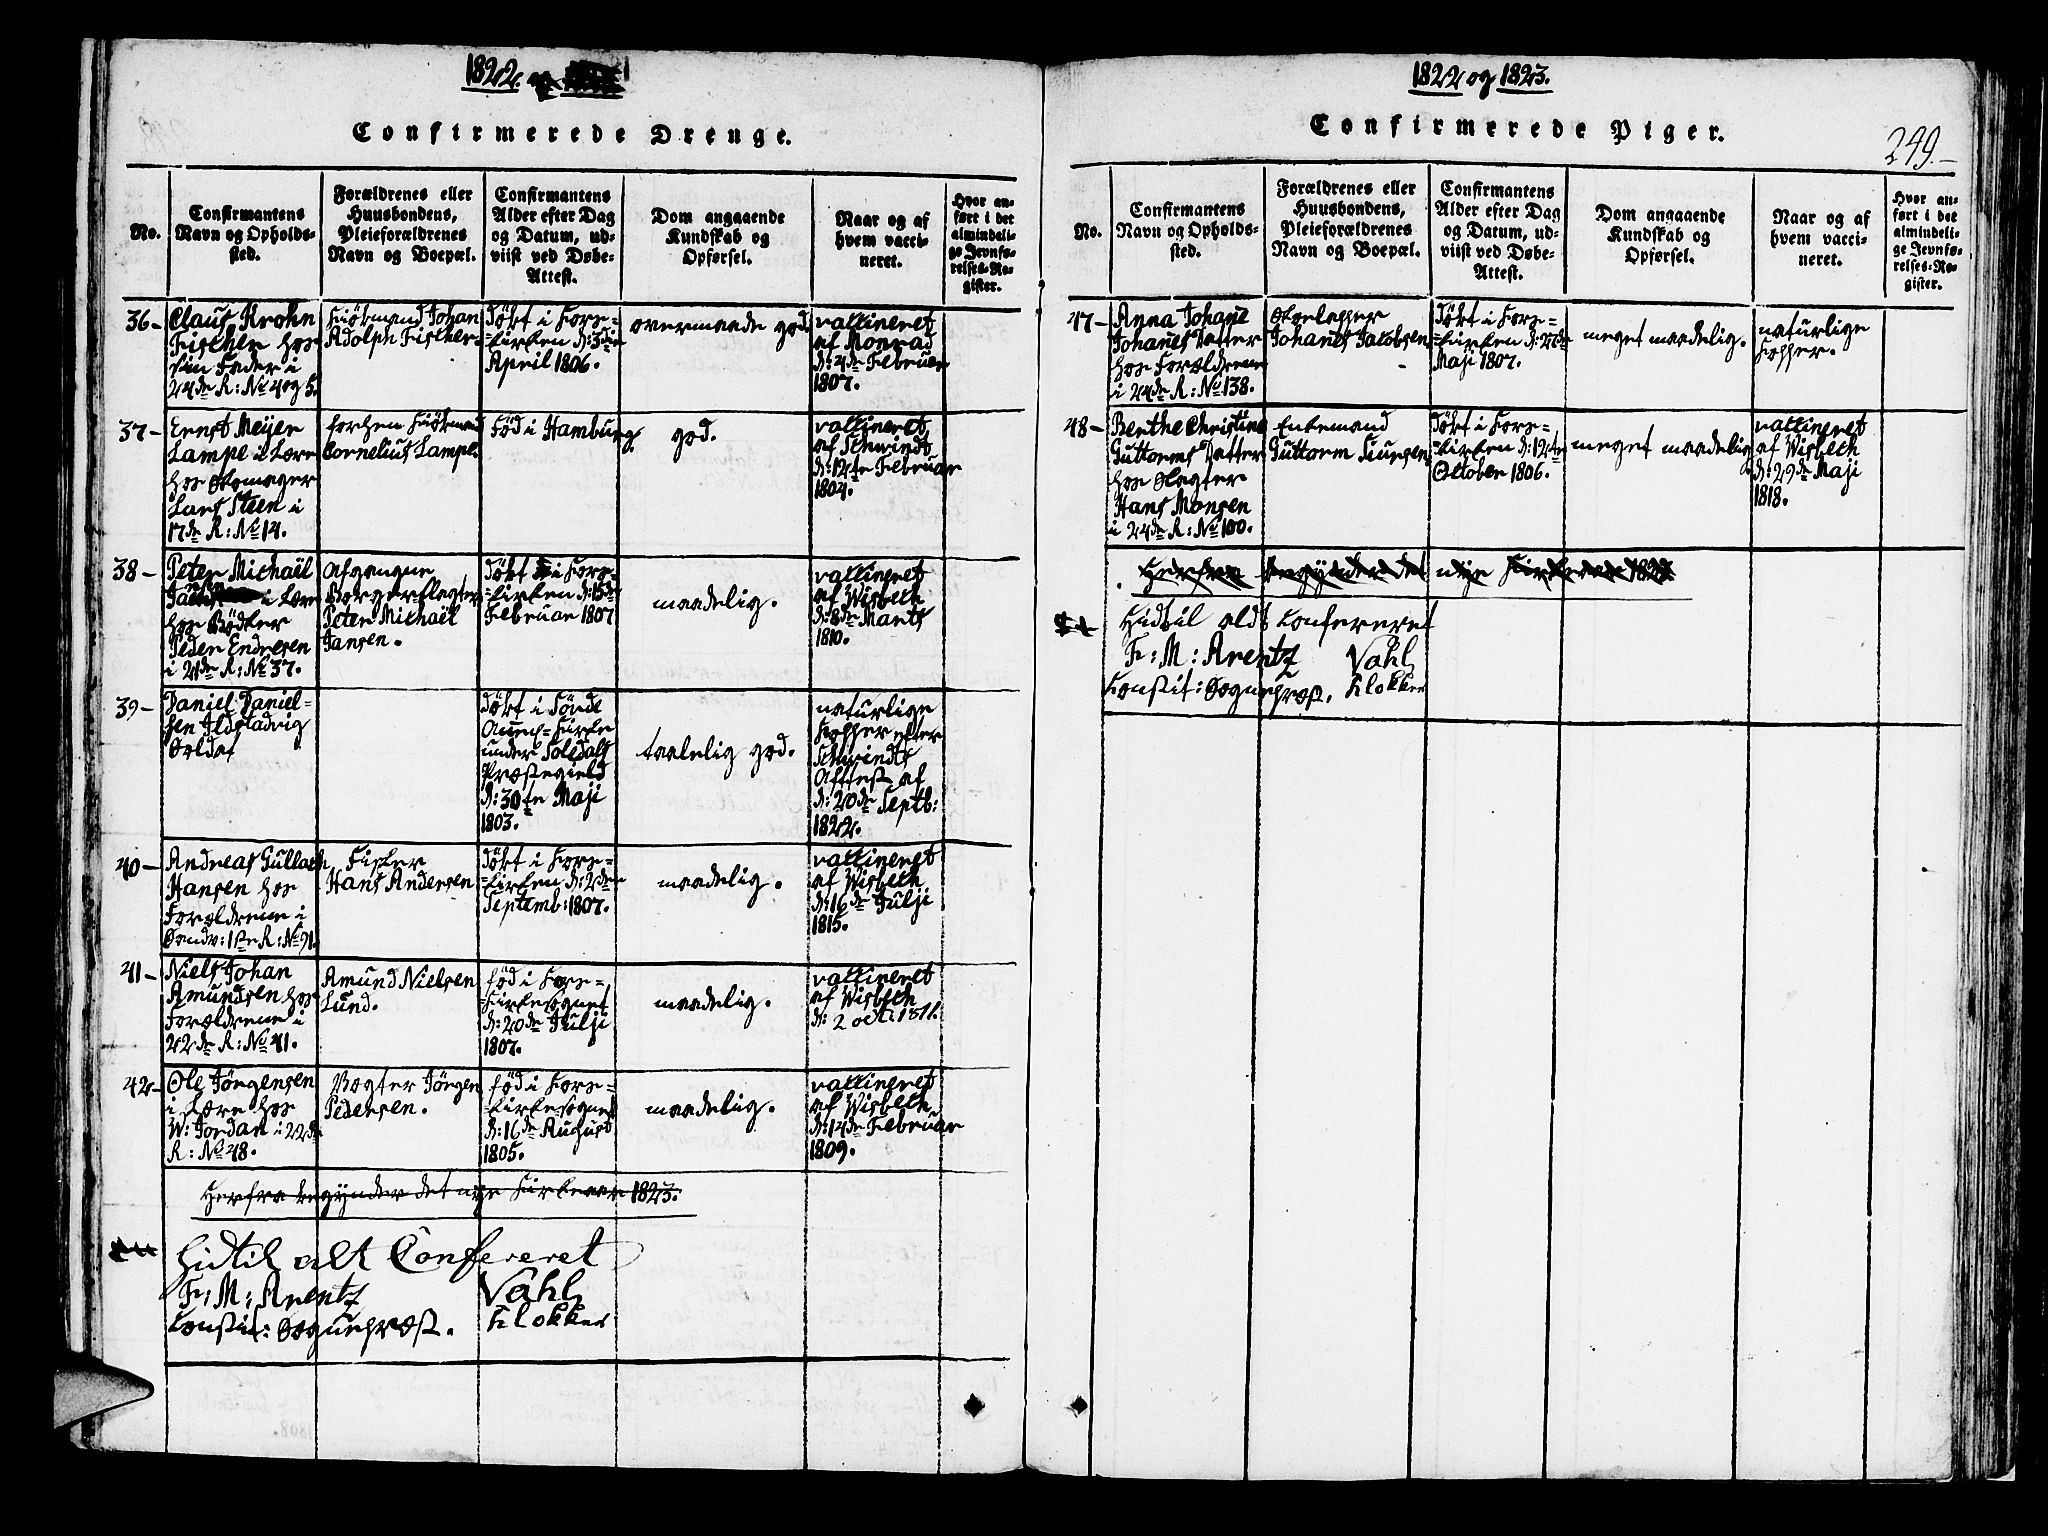 1822. og
Confirmerede Drenge.
No.
Confirmantens
Navn og Opholds-
sted.
Forældrenes eller
Huusbondens,
Pleieforældrenes
Navn og Boepæl.
Confirmantens
Alder efter Dag
og Datum, ud-
viist ved Døbe-
Attest.
Dom angaaende
Kundskab og
Opførsel.
Naar og af
hvem vacci-
neret.
Hvor an-
ført i det
almindeli-
ge Jevnfø-
relses-Re-
gister.
36-
Claus Krohn
Fischer hos
sin Fader i
24de R: No 4 og 5.
Kiöbmand Johan
Adolph Fischer
Döbt i Kors-
-kirken d: 3die
April 1806.
overmaade god.
vaccineret
af Monrad
d: 4de Februar
1807.
37-
Ernst Meyer
Lampe i Lære
hos Skomager
Lars Steen i
17de R: No 14.
forhen Kiöbmand
Cornelius Lampe.
Föd i Hamburg.
god.
vaccineret
af Schwindt
d: 12te Februar
1804.
38-
Peter Michaël
i Lære
hos Bödker
Peder Endresen
i 21de R: No 37.
Afgangne
Borgerslagter
Peter Michaël
Jansen.
Döbt i Kors-
-kirken d: 15de
Februar 1807
maadelig.
vaccineret
af Wisbech
d: 8de Marts
1810.
39-
Daniel Daniel-
sen Ildstadvig
Soldat
Döbt i Söndre
Aunes-Kirke
under Soledals
Præstegield
d: 30te Maji
1803.
taalelig god.
naturlige
Kopper efter
Schwindts
Attest af
d: 20de Septb:
1822.
40-
Andreas Gullach
Hansen hos
Forældrene i
Sandv: 1ste R: No 91.
Fisker
Hans Andersen
Döbt i Kors-
-kirken d: 2den
Septemb: 1807.
maadelig.
vaccineret
af Wisbech
d: 16de Julji
1815.
41-
Niels Johan
Amundsen hos
Forældrene i
22de R: No 41.
Amund Nielsen
Lund.
föd i Kors-
-kirkesognet
d: 20de Julji
1807.
maadelig.
vaccineret
af Wisbech
d: 2 oct: 1811.
42-
Ole Jörgensen
i Lære hos
W: Jordan i 22de
R: No 48.
Vogter Jörgen
Pedersen.
föd i Kors-
-kirkesognet
d: 16de August
1805.
maadelig.
vaccineret
af Wisbech
d: 14de Februar
1809.
Herfra begÿnder det nÿe Kirkeaar 1823.
Hidtil alt Confereret
Fr: M: Arentz Vahl
Constit: Sognepræst. Klokker
1822 og 1823.
Confirmerede Piger.
249.-
No.
Confirmantens
Navn og Opholds-
sted.
Forældrenes eller
Huusbondens,
Pleieforældrenes
Navn og Boepæl.
Confirmantens
Alder efter Dag
og Datum, ud-
viist ved Døbe-
Attest.
Dom angaaende
Kundskab og
Opførsel.
Naar og af
hvem vacci-
neret.
Hvor an-
ført i det
almindeli-
ge Jevnfø-
relses-Re-
gister.
47-
Anna Johane
Johanes Datter
hos Forældrene
i 24de R: No 138.
Skolapper
Johanes Jacobsen
Döbt i Kors-
-kirken d:
Maji 1807.
meget maadelig.
naturlige
Kopper.
48-
Berthe Christine
Guttorms Datter
hos Slagter
Hans Monsen
i 24de R: No 100.
Enkemand
Guttorm Siursen
Döbt i Kors-
-kirken d: 12te
October 1806.
meget maadelig
vaccineret
af Wisbech
d: 29de Maji
1818.
Herfra begÿnder det nÿe Kirkeaar 1823
Hidtil alt Confereret
Fr: M: Arentz Vahl
Constit: Sognepræst. Klokker